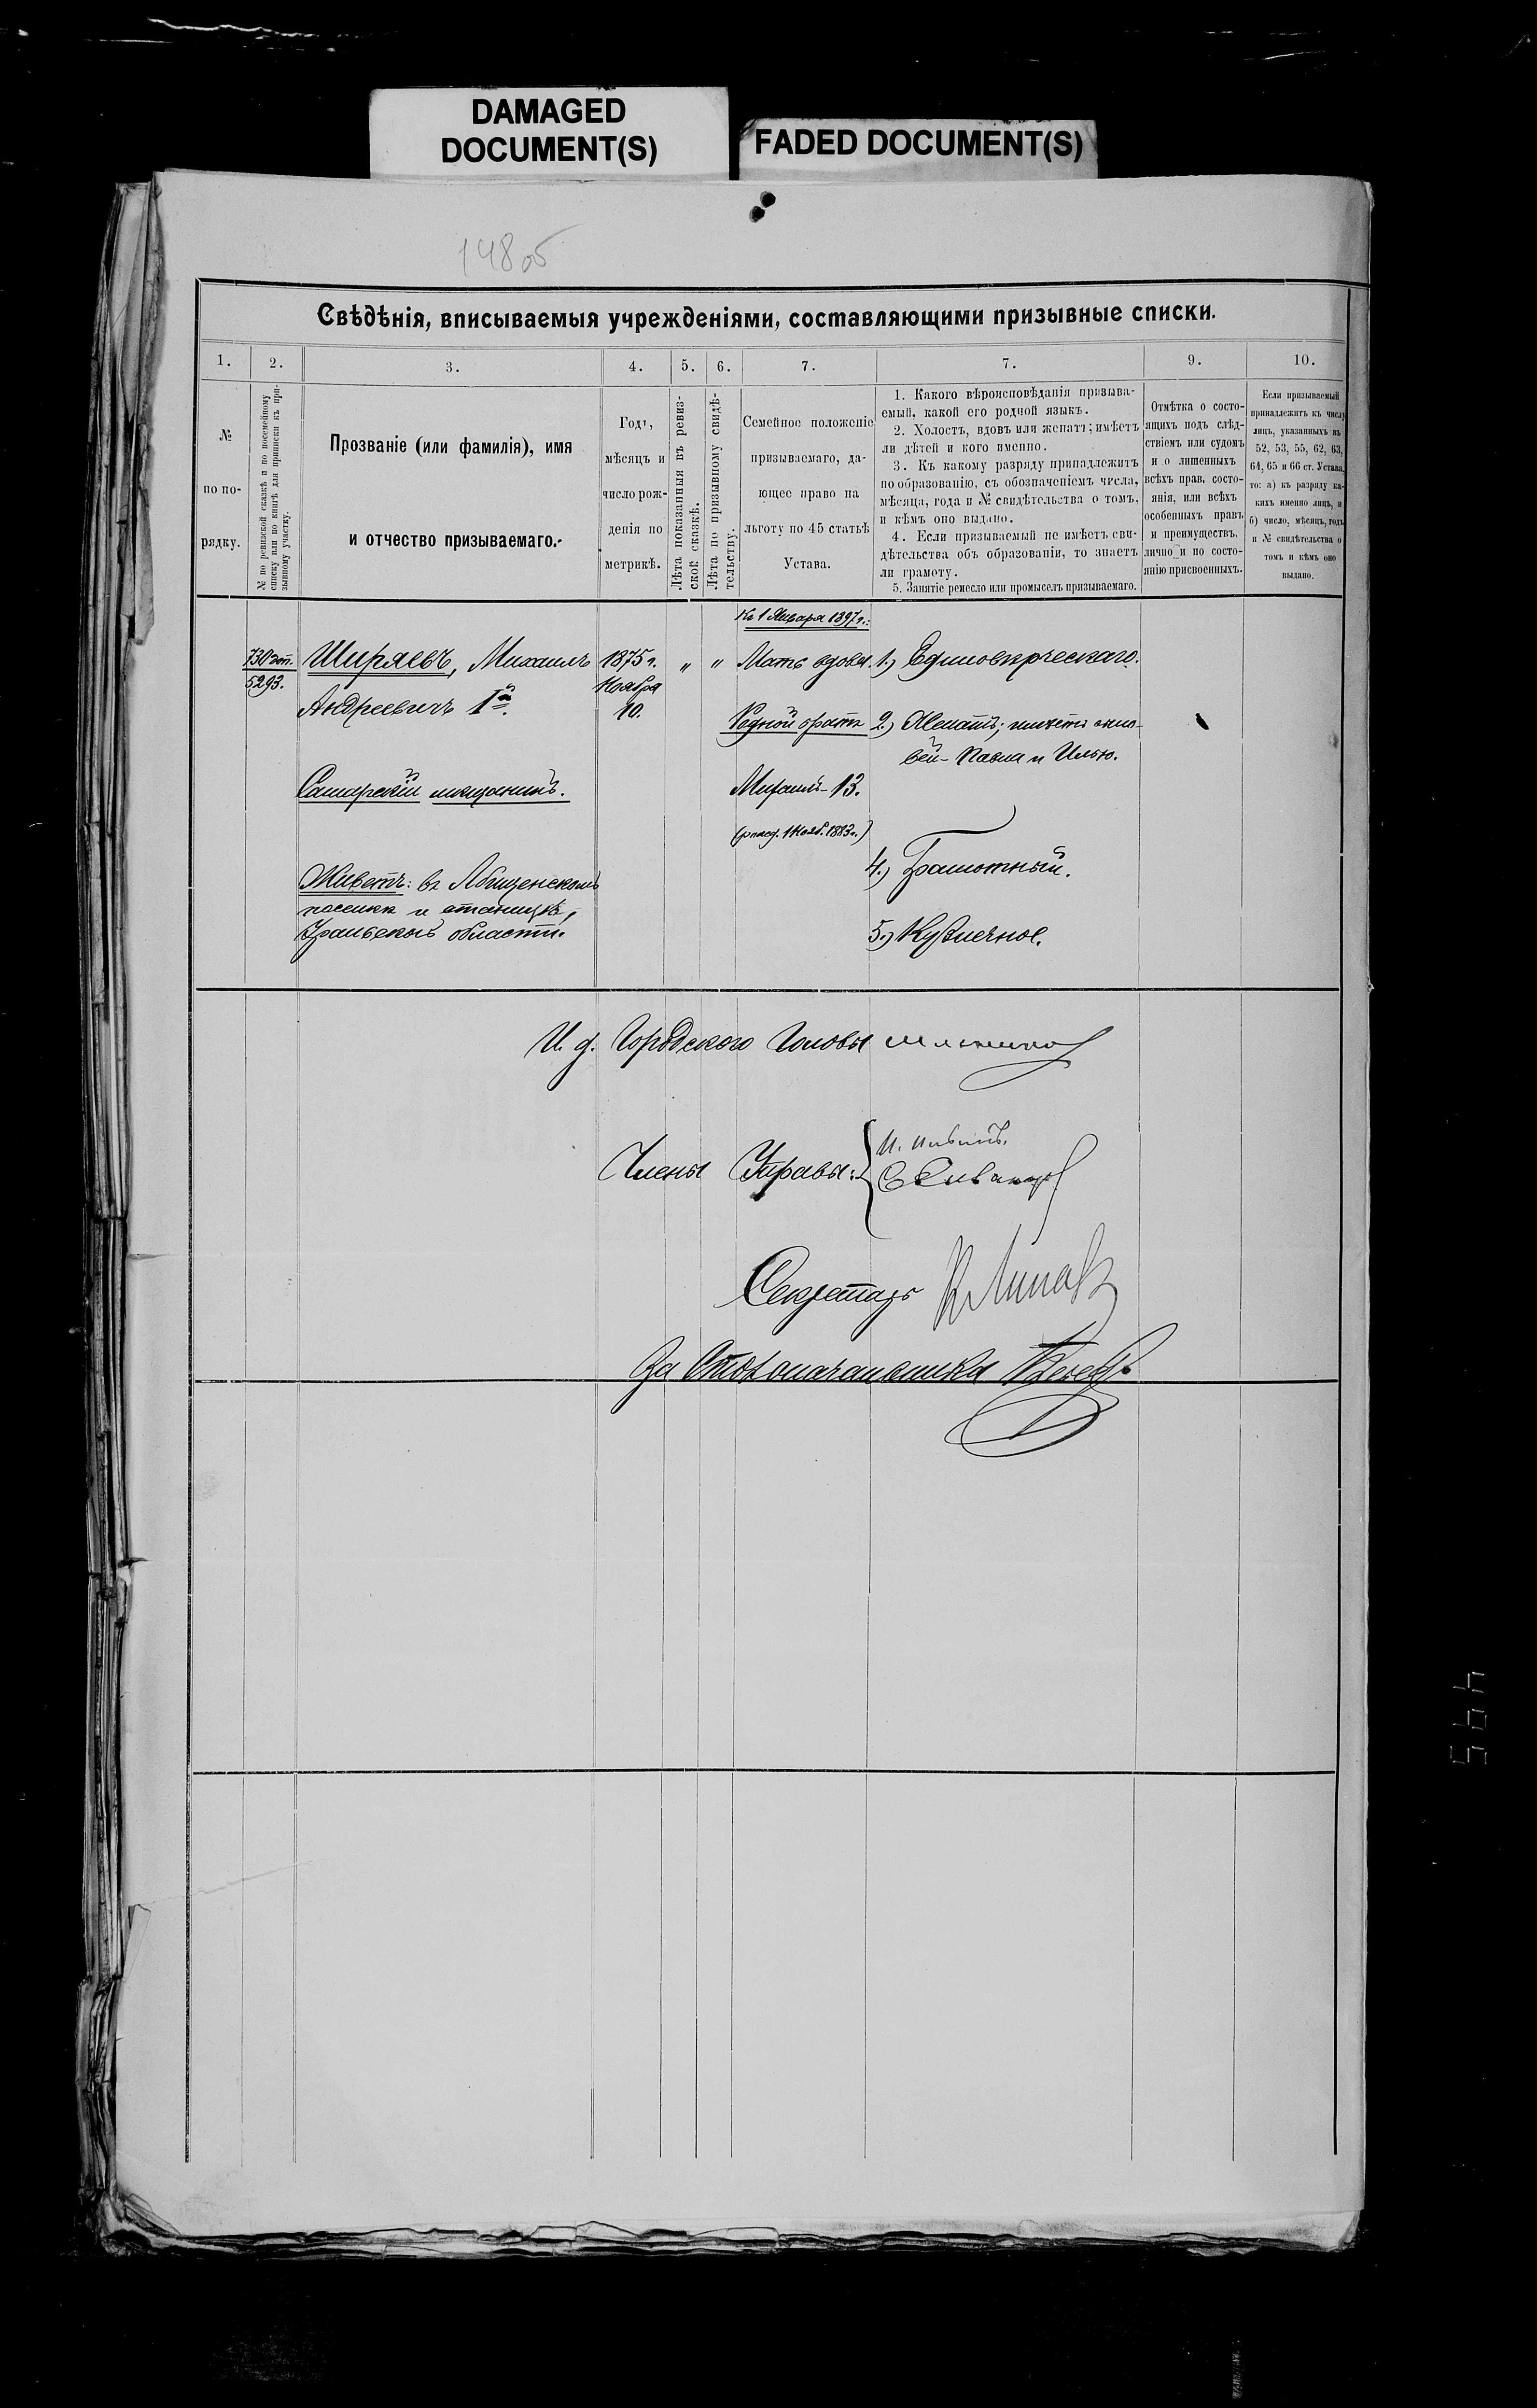 DAMAGED
DOCUMENT(S)
FADED DOCUMENT(S)
148 об
Свѣдѣнія, вписываемыя учрежденіями, составляющими призывные списки.
1. 2. 3. 4. 5. 6. 7. 7. 9. 10.
№
по по-
рядку.
№ по ревизской сказкѣ и по посемейному
списку или по книгѣ для приписки къ при-
зывному участку.
Прозваніе (или фамилія), имя
и отчество призываемаго.
Годъ,
мѣсяцъ и
число рож-
денія по
метрикѣ.
Лѣта показанныя въ ревиз-
ской сказкѣ.
Лѣта по призывному свидѣ-
тельству.
Семейное положеніе
призываемаго, да-
ющее право на
льготу по 45 статьѣ
Устава.
1. Какого вѣроисповѣданія призыва-
емый, какой его родной языкъ.
2. Холостъ, вдовъ или женатъ; имѣетъ
ли дѣтей и кого именно.
3. Къ какому разряду принадлежитъ
по образованію, съ обозначеніемъ числа,
мѣсяца, года и № свидѣтельства о томъ,
и кѣмъ оно выдано.
4. Если призываемый не имѣетъ сви-
дѣтельства объ образованіи, то знаетъ
ли грамоту.
5. Занятіе ремесло или промыселъ призываемаго.
Отмѣтка о состо-
ящихъ подъ слѣд-
ствіемъ или судомъ
и о лишенныхъ
всѣхъ прав, состо-
янія, или всѣхъ
особенныхъ правъ
и преимуществъ,
лично и по состо-
янію присвоенныхъ.
Если призываемый
принадлежитъ къ числу
лицъ, указанныхъ въ
52, 53, 55, 62, 63,
64, 65 и 66 ст. Устава,
то: а) къ разряду ка-
кихъ именно лицъ, и
б) число, мѣсяцъ, годъ
и № свидѣтельства о
томъ и кѣмъ оно
выдано.
5293.
Ширяевъ, Михаилъ
Андреевичъ 1й.
Самарскій мѣщанинъ.
Живетъ: въ Лбищенскомъ
поселкѣ и станицѣ,
Уральской области.
1875 г.
Ноября
10.
" "
Къ 1 Января 1897 г.:
Мать вдова.
Родной братъ
13.
1883 г.)
1.) Единовѣрческаго.
2.) Женатъ; имѣетъ сыно-
вей - Павла и Илью.
4.) Грамотный.
5.) Кузнечное.
И. д. Городского Головы
Члены Управы:
Секретарь
За Столоначальника
445